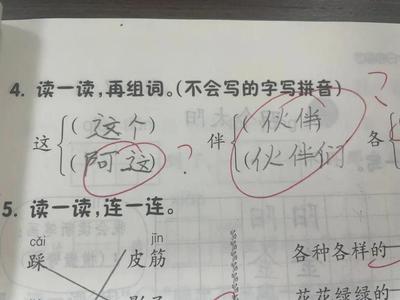 4. 读一读,再组词。(不会写的字写拼音)
这 (这个) 伴 (伙伴 各
(阿这) ? (伙伴们 ?
5. 读一读,连一连。
cǎi jīn
踩 皮筋 各种各样的
花花绿绿的